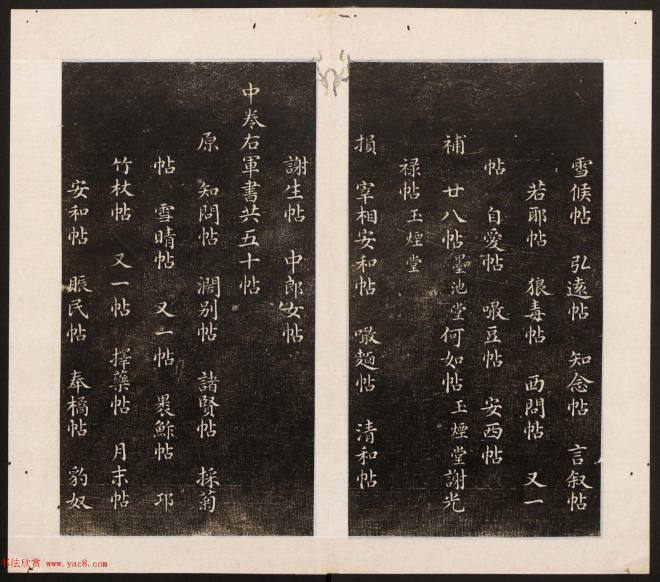 雪候帖 弘遠帖 知念帖 言叙帖
若耶帖 狼毒帖 西問帖 又一
帖 自愛帖 噉豆帖 安西帖
補 廿八帖墨池堂何如帖玉煙堂謝光
禄帖玉煙堂
損 宰相安和帖 噉麵帖 清和帖
謝生帖 中郎女帖
中卷右軍書共五十帖
原 知問帖 濶别帖 諸賢帖 採菊
帖 雪晴帖 又一帖 裹鮓帖 邛
竹杖帖 又一帖 擇藥帖 月末帖
安和帖 賑民帖 奉橘帖 豹奴
书法欣赏 www.yac8.com